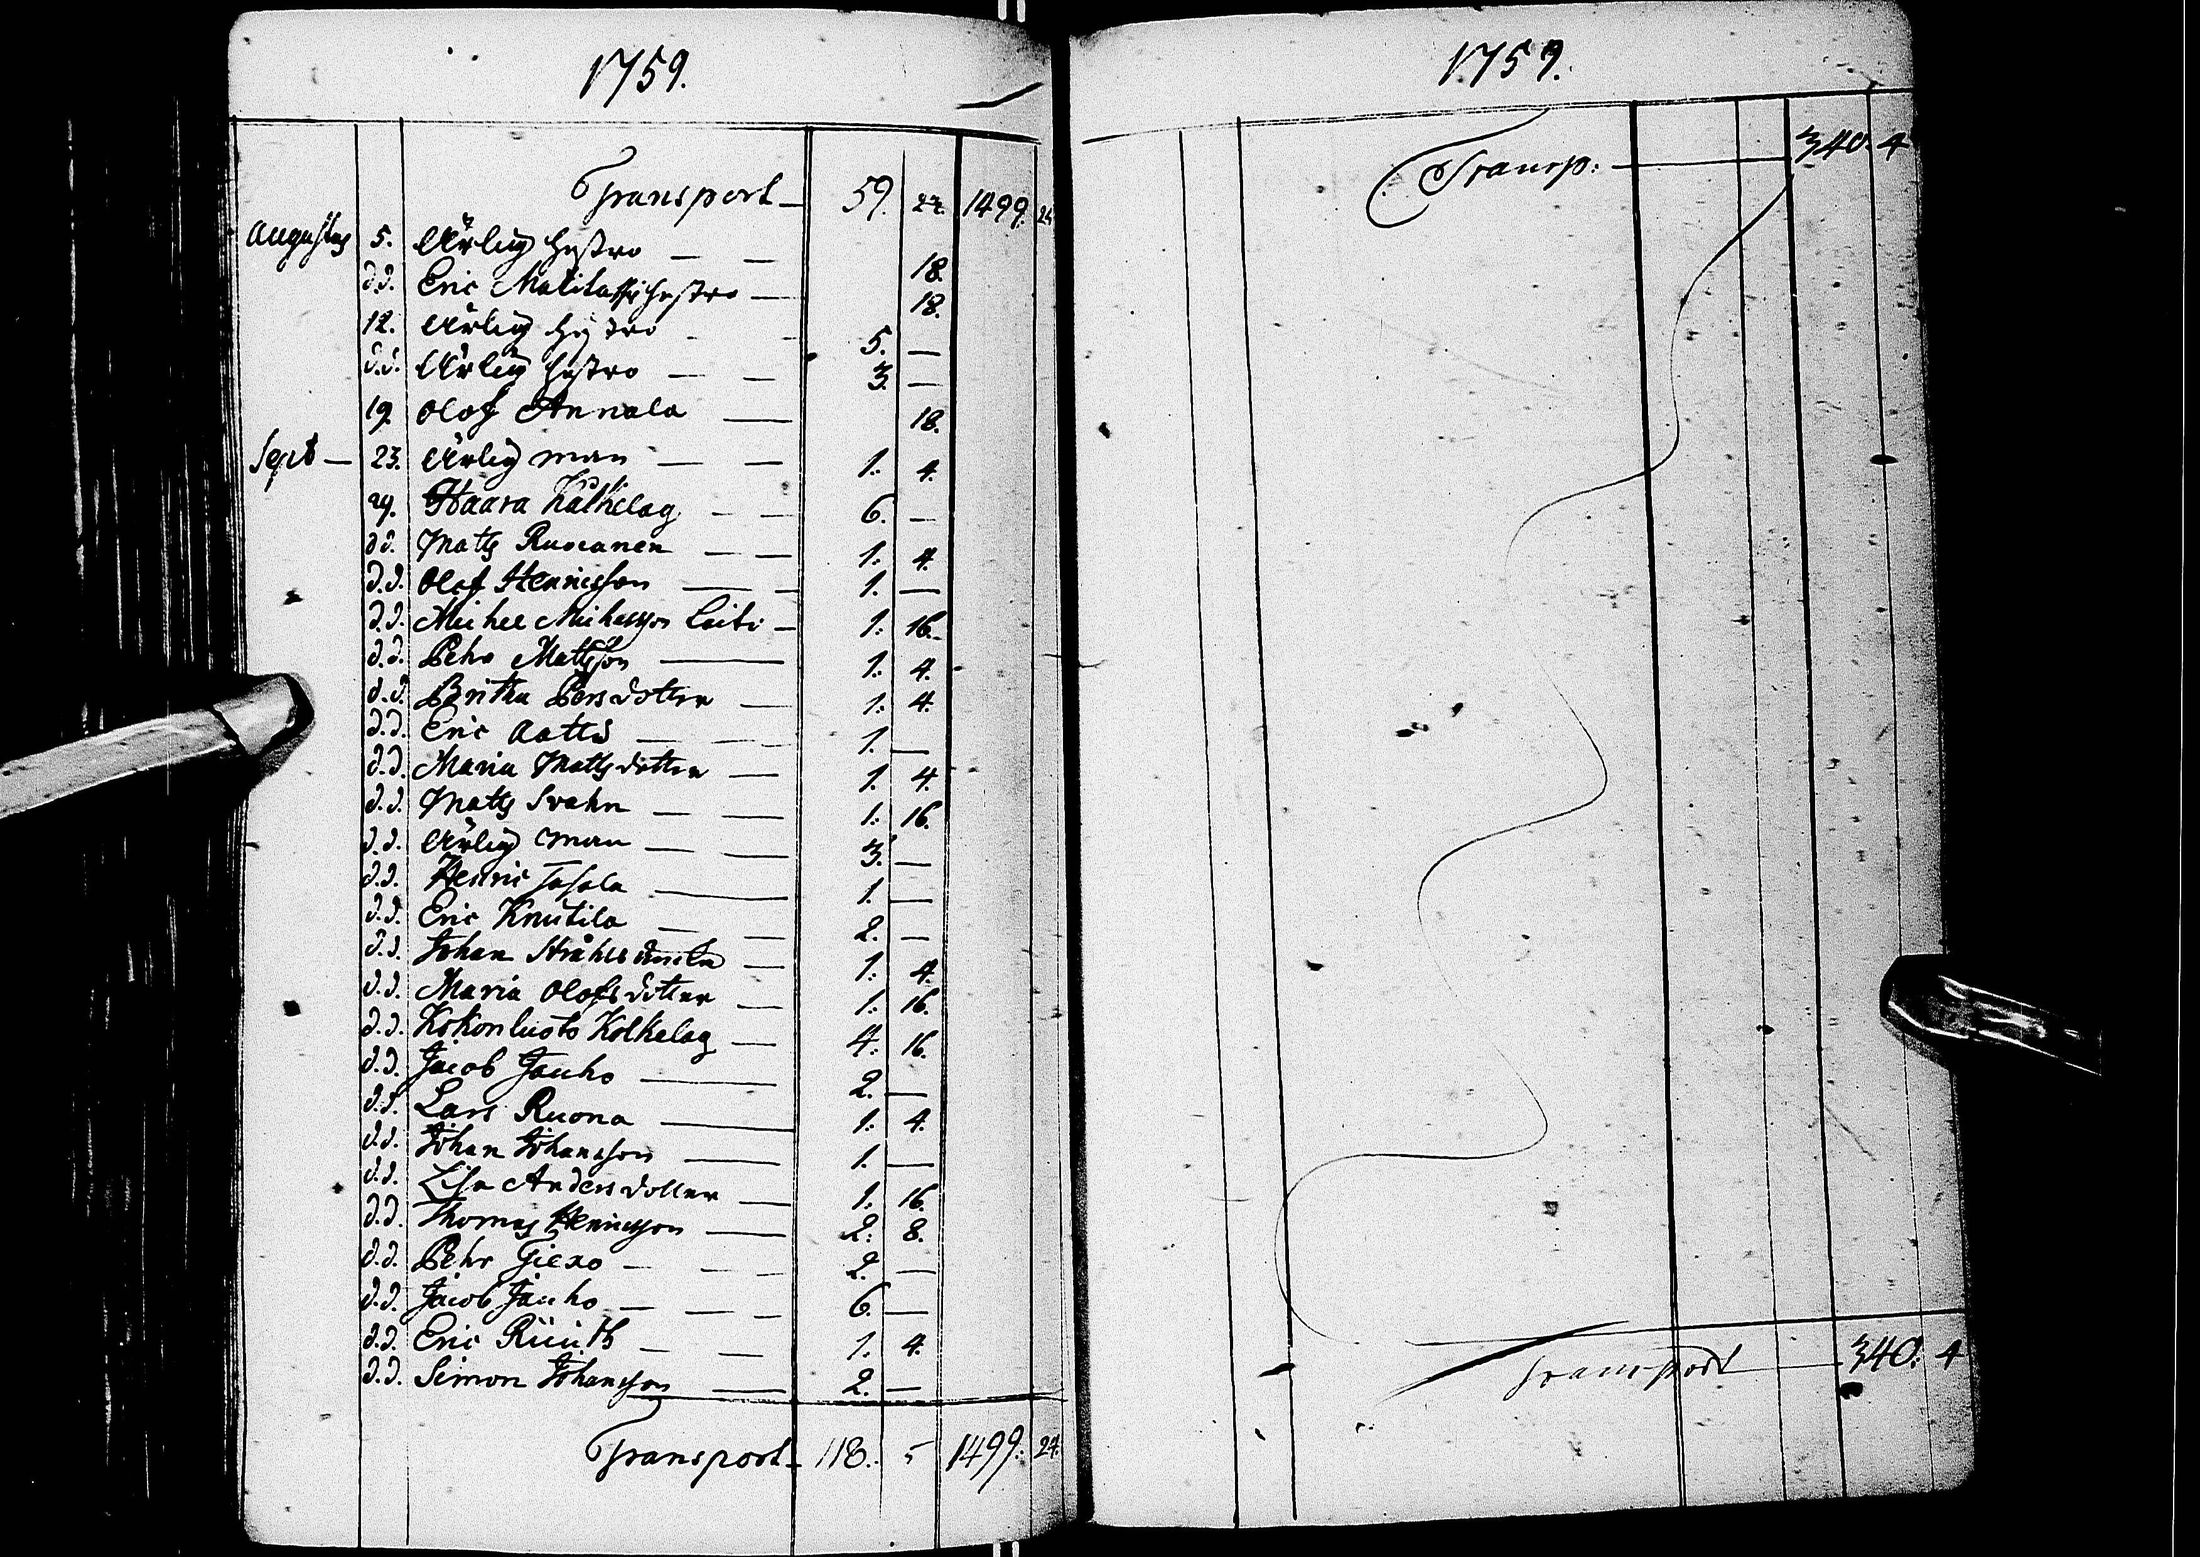 1759.
Transport 59. 22. 1499. 24
Augustus 5. Ärlig hustro 18.
d.d. Eric Matilas hustro 18.
12. Ärlig hustro 5. —
d.d. Ärlig hustro 3. —
19. Olof Annala 18.
Sept 23. Ärlig man 1: 4.
29. Haara Kälkelag 6. —
d.d. Matts Ruocanen 1. 4.
d.d. Olof Henricsson 1. —
d.d. Michel Michelsson Laiti 1: 16.
d.d. Pehr Mattsson 1: 4.
d.d. Britha Persdotter 1: 4.
d.d. Eric Aatts 1. —
d.d. Maria Mattsdotter 1. 4.
d.d. Matts Svahn 1: 16.
d.d. Ärlig man 3. —
d.d. Henric 1. —
d.d. Eric Knutila 2. —
d.d. Johan 1: 4.
d.d. Maria Olofsdotter 1: 16.
d.d. Kokonluoto Kolkelag 4: 16.
d.d. Jacob Jauho 2. —
d.d. Lars Ruona 1: 4.
d.d. Johan Johansson 1. —
d.d. Lisa Andersdotter 1. 16.
d.d. Thomas Henricsson 2: 8.
d.d. Pehr Giexo 2. —
d.d. Jacob Jauho 6. —
d.d. Eric Ruuth 1. 4.
d.d. Simon Johansson 2. —
Transport 118. 5 1499: 24.
1759.
Transp: 340. 4
Transport 340: 4